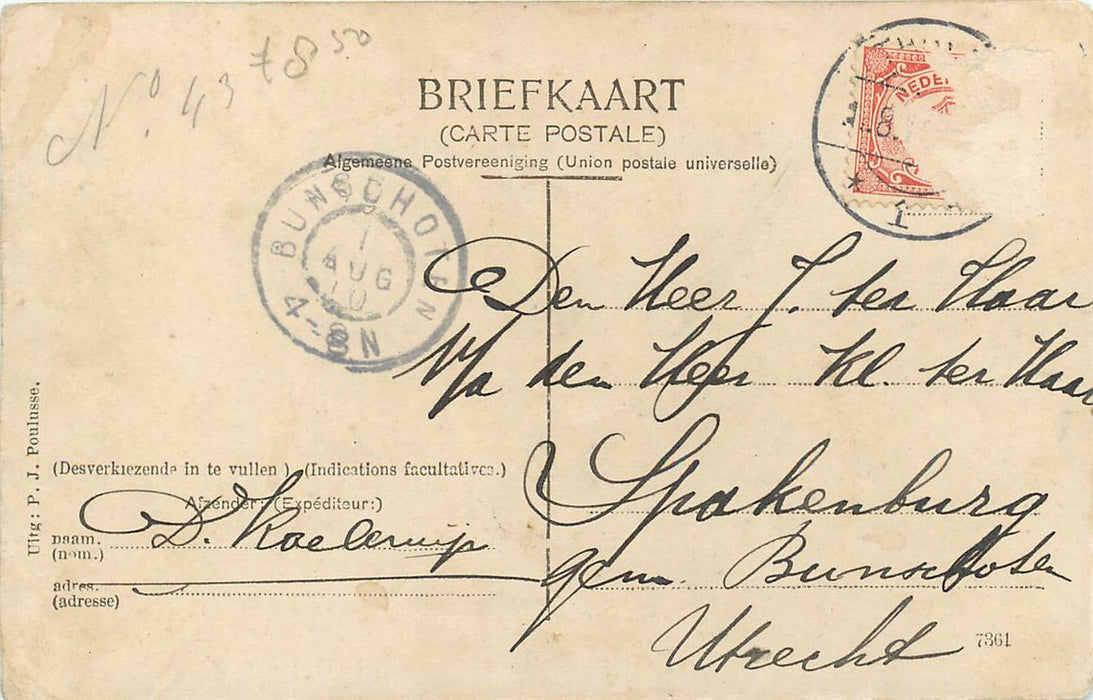 No. 43 78 50
BRIEFKAART
(CARTE POSTALE)
Algemeene Postvereeniging (Union postale universelle)
NEDE
BUNSCHOTEN
1
AUG
10
4-8N
Den Heer J. ter Haar
V/a den Heer Kl. ter Haar
Spakenburg
gem. Bunschoten
Utrecht
(Desverkiezende in te vullen) (Indications facultatives.)
Afzender: (Expéditeur:)
naam.
(nom.)
adres.
(adresse)
Uitg: P. J. Poulusse.
7361